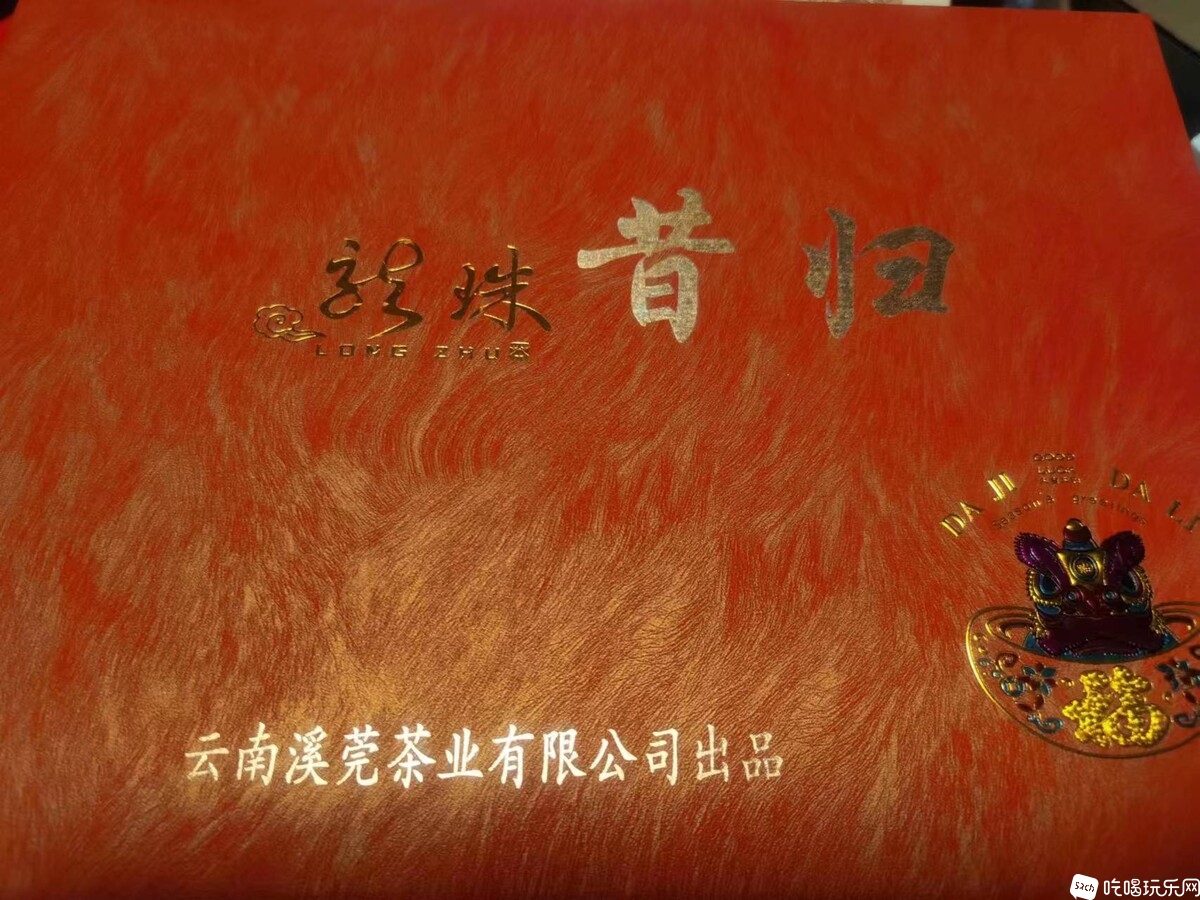 龙珠 昔归
LONG ZHU
GOOD
LUCK
DA JI DA LI
Season's greetings
福
云南溪莞茶业有限公司出品
52ch 吃喝玩乐网